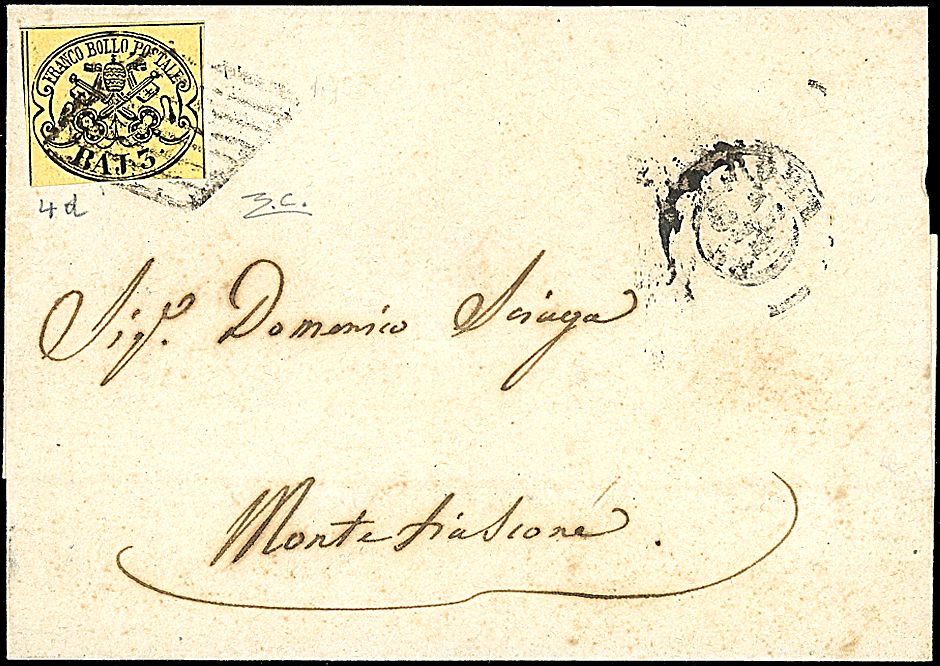 FRANCO BOLLO POSTALE
BAJ. 3
4d
Sig.r Domenico
Montefiascone.